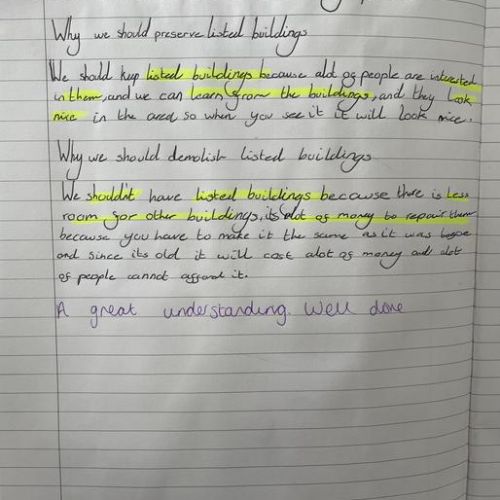 Why we should preserve listed buildings
We should keep listed buildings because alot of people are interested
in them, and we can learn from the buildings, and they look
nice in the area so when you see it it will look nice.
Why we should demolish listed buildings
We shouldnt have listed buildings because there is less
room for other buildings, its alot of money to repair them
because you have to make it the same as it was
and since its old it will cost alot of money and alot
of people cannot afford it.
A great understanding. Well done